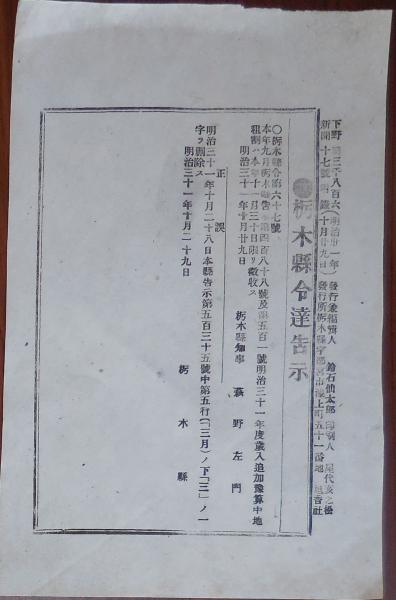 下野新聞三千八百六十七號附錄(明治卅一年十月廿九日) 發行兼編輯人 鈴石仙太郎 印刷人 屋代亥之松
發行所栃木縣宇都宮市 上町五十一番地 旭香社
栃木縣令達告示
〇栃木縣令第六十七號
本年九月栃木縣告示第四百八十八號及第五百一號明治三十一年度歲入追加豫算中地
租割ハ本年十一月三十日限リ徵收ス
明治三十一年十月廿九日
栃木縣知事 萩野左門
正誤
明治三十一年十月二十八日本縣告示第五百三十五號中第五行(「三月」ノ下「三」ノ一
字ヲ刪除ス
明治三十一年十月二十九日
栃木縣